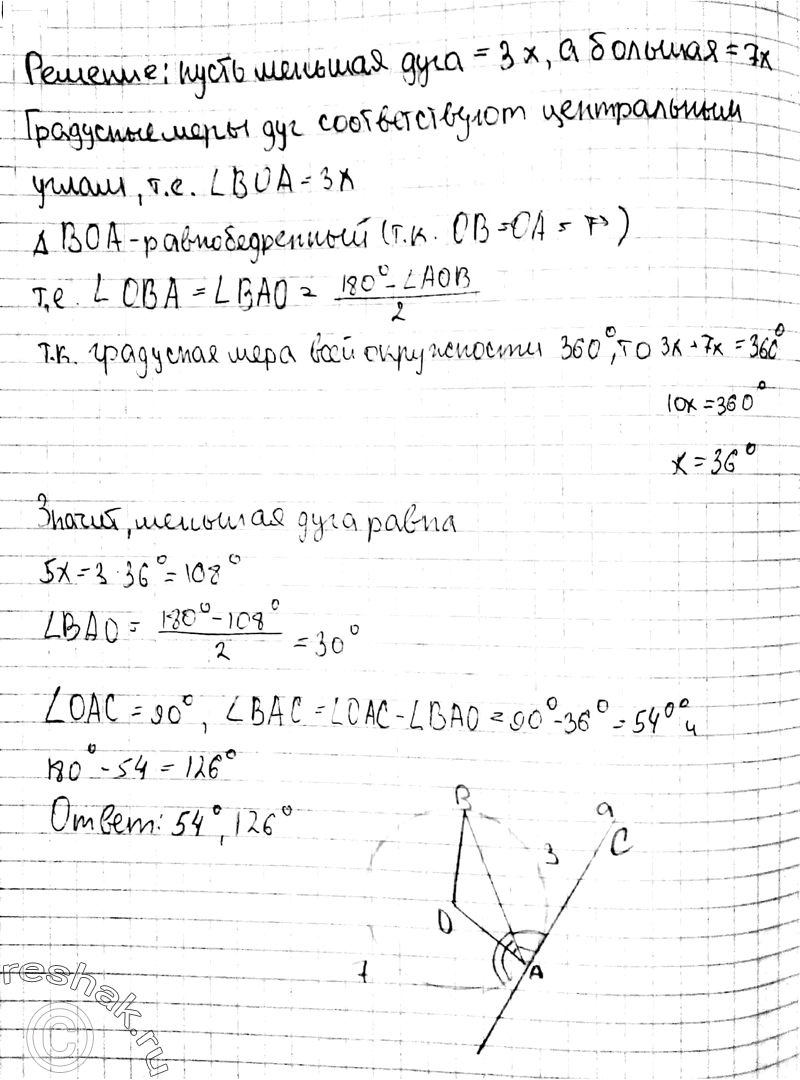 Решение: пусть меньшая дуга = 3x, а большая = 7x
Градусные меры дуг соответствуют центральным
углам, т.е. ∠BOA = 3x
Δ BOA - равнобедренный (т.к. OB = OA = r)
т.е. ∠OBA = ∠BAO = (180° - ∠AOB)/2
т.к. градусная мера всей окружности 360°, то 3x + 7x = 360°
10x = 360°
x = 36°
Значит, меньшая дуга равна
5x = 3 · 36° = 108°
∠BAO = (180° - 108°)/2 = 30°
∠OAC = 90°, ∠BAC = ∠OAC - ∠BAO = 90° - 36° = 54° и
180° - 54 = 126°
Ответ: 54°, 126°
B
a
C
3
O
A
7
reshak.ru
©